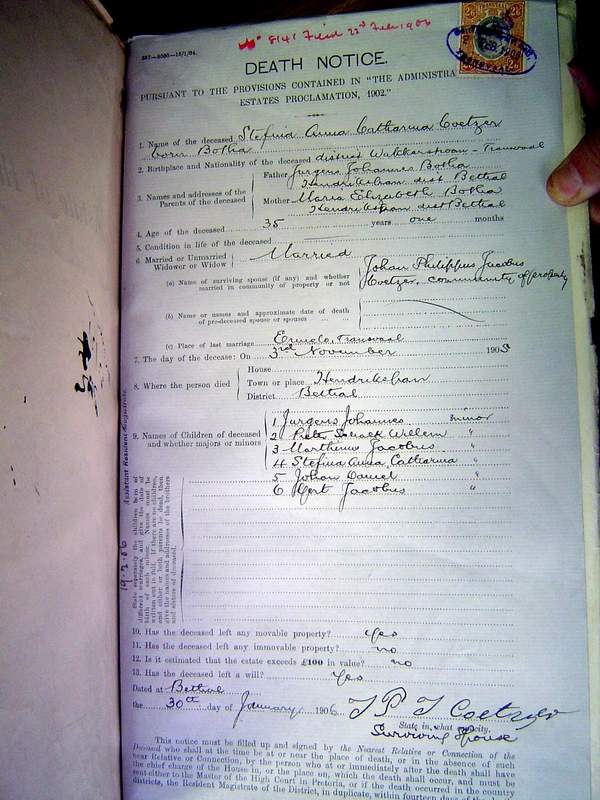 8141 Filed 22nd Feb 1906
DEATH NOTICE.
PURSUANT TO THE PROVISIONS CONTAINED IN "THE ADMINISTRA
ESTATES PROCLAMATION, 1902."
1. Name of the deceased Stefina Anna Catharina Coetzer
born Botha
2. Birthplace and Nationality of the deceased district Wakkerstroom - Transvaal
3. Names and addresses of the Parents of the deceased
Father Jurgens Johannes Botha
dist Bethal
Mother Maria Elizabeth Botha
dist Bethal
4. Age of the deceased 35 years one months
5. Condition in life of the deceased
6. Married or Unmarried Widower or Widow Married
(a) Name of surviving spouse (if any) and whether married in community of property or not
Johan Philippus Jacobus
Coetzer, community of property
(b) Name or names and approximate date of death of pre-deceased spouse or spouses
(c) Place of last marriage Ermelo, Transvaal
7. The day of the decease: On 3rd November 1905
8. Where the person died
House
Town or place
District Bethal
9. Names of Children of deceased and whether majors or minors
1 Jurgens Johannes minor
2 Willem "
3 Marthinus Jacobus "
4 Stefina Anna Catharina "
5 Johan Daniel "
6 Jacobus "
State separately the children born of different marriages, and give the date of birth of each minor. Names must be written out in full. If there are no children, and either or both parents be dead, then give the names and addresses of the brothers and sisters of deceased.
19-2-06
Assistant Resident Magistrate
10. Has the deceased left any movable property? yes
11. Has the deceased left any immovable property? no
12. Is it estimated that the estate exceeds £100 in value? no
13. Has the deceased left a will? Yes
Dated at Bethal
the 30th day of January 1906
J P J Coetzer
State in what capacity.
Surviving Spouse
This notice must be filled up and signed by the Nearest Relative or Connection of the
Deceased who shall at the time be at or near the place of death, or in the absence of such
near Relative or Connection, by the person who at or immediately after the death shall have
the chief charge of the House in, or the place on, which the death shall occur, and must be
sent either to the Master of the High Court in Pretoria, or if the death occurred in the country
districts, the Resident Magistrate of the District, in duplicate, within